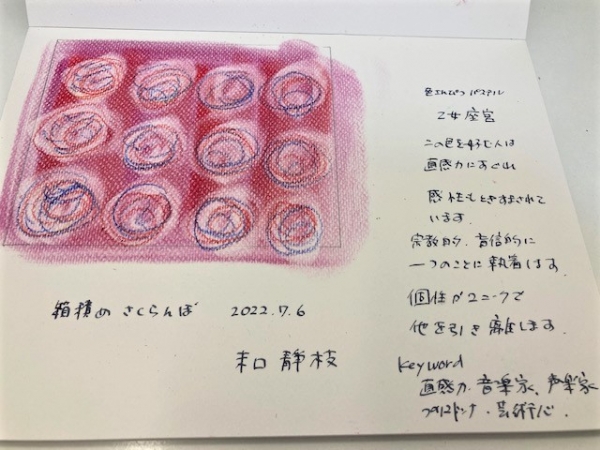 箱積め さくらんぼ 2022.7.6
静枝
色えんぴつ パステル
乙女座宮
この色を好む人は
直感力にすぐれ
感性もとぎすまされて
います.
宗教的、盲信的に
一つのことに執着します.
個性がユニークで
他を引き離します.
Keyword
直感力. 音楽家、声楽家
プリマドンナ・芸術心.